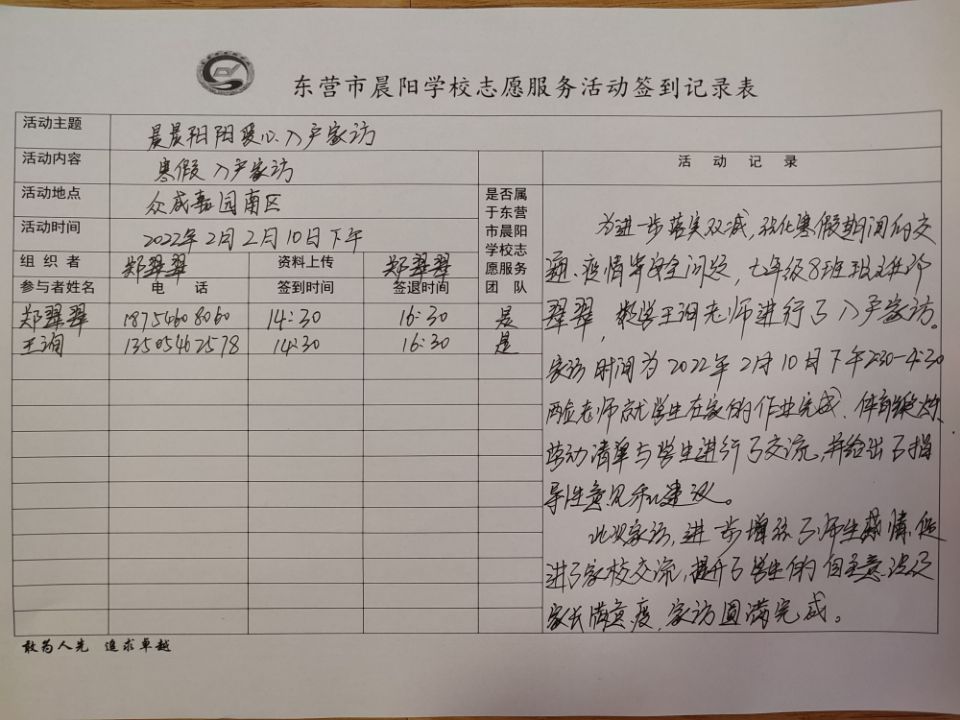 东营市晨阳学校志愿服务活动签到记录表
活动主题 晨晨阳阳爱心入户家访
活动内容 寒假入户家访
活动地点 众成嘉园南区
活动时间 2022年2月2月10日下午
组织者 郑翠翠 资料上传 郑翠翠
参与者姓名 电话 签到时间 签退时间
是否属
于东营
市晨阳
学校志
愿服务
团队
郑翠翠 18754608060 14:30 16:30 是
王询 13505462578 14:30 16:30 是
活动记录
为进一步落实双减,强化寒假期间的交
通、疫情等安全问题,七年级8班班主任郑
翠翠,数学王询老师进行了入户家访。
家访时间为2022年2月10日下午2:30-4:30
两位老师就学生在家的作业完成、体育锻炼、
劳动清单与学生进行了交流,并给出了指
导性意见和建议。
此次家访,进一步增强了师生感情,促
进了家校交流,提升了学生的自主意识及
家长满意度,家访圆满完成。
敢为人先 追求卓越